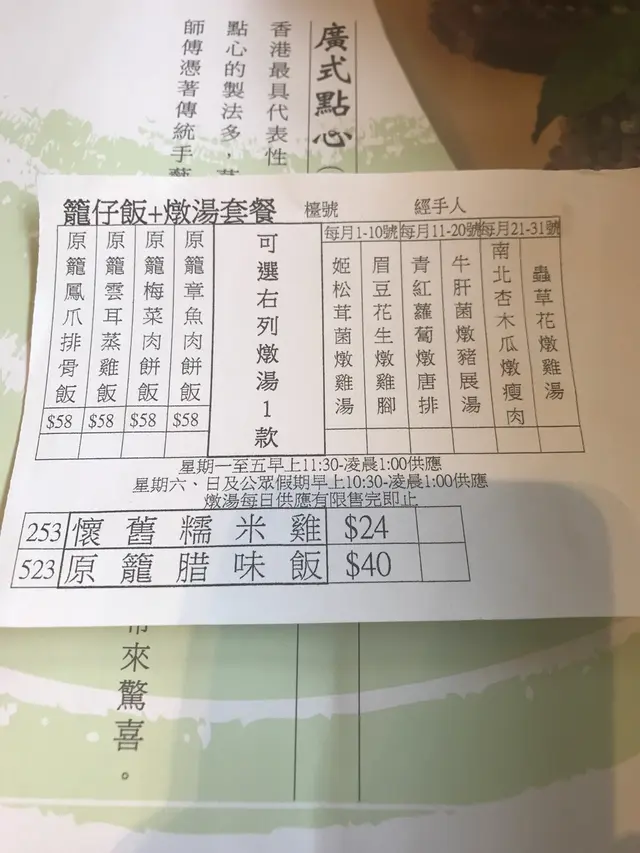 廣式點心（
香港最具代表性
點心的製法多，
師傅憑著傳統手藝
籠仔飯+燉湯套餐 檯號 經手人
每月1-10號 每月11-20號 每月21-31號
原籠鳳爪排骨飯
原籠雲耳蒸雞飯
原籠梅菜肉餅飯
原籠章魚肉餅飯
可選右列燉湯1款
姬松茸菌燉雞湯
眉豆花生燉雞腳
青紅蘿蔔燉唐排
牛肝菌燉豬展湯
南北杏木瓜燉瘦肉
蟲草花燉雞湯
$58 $58 $58 $58
星期一至五早上11:30-凌晨1:00供應
星期六、日及公眾假期早上10:30-凌晨1:00供應
燉湯每日供應有限售完即止
253 懷舊糯米雞 $24
523 原籠腊味飯 $40
來驚喜。